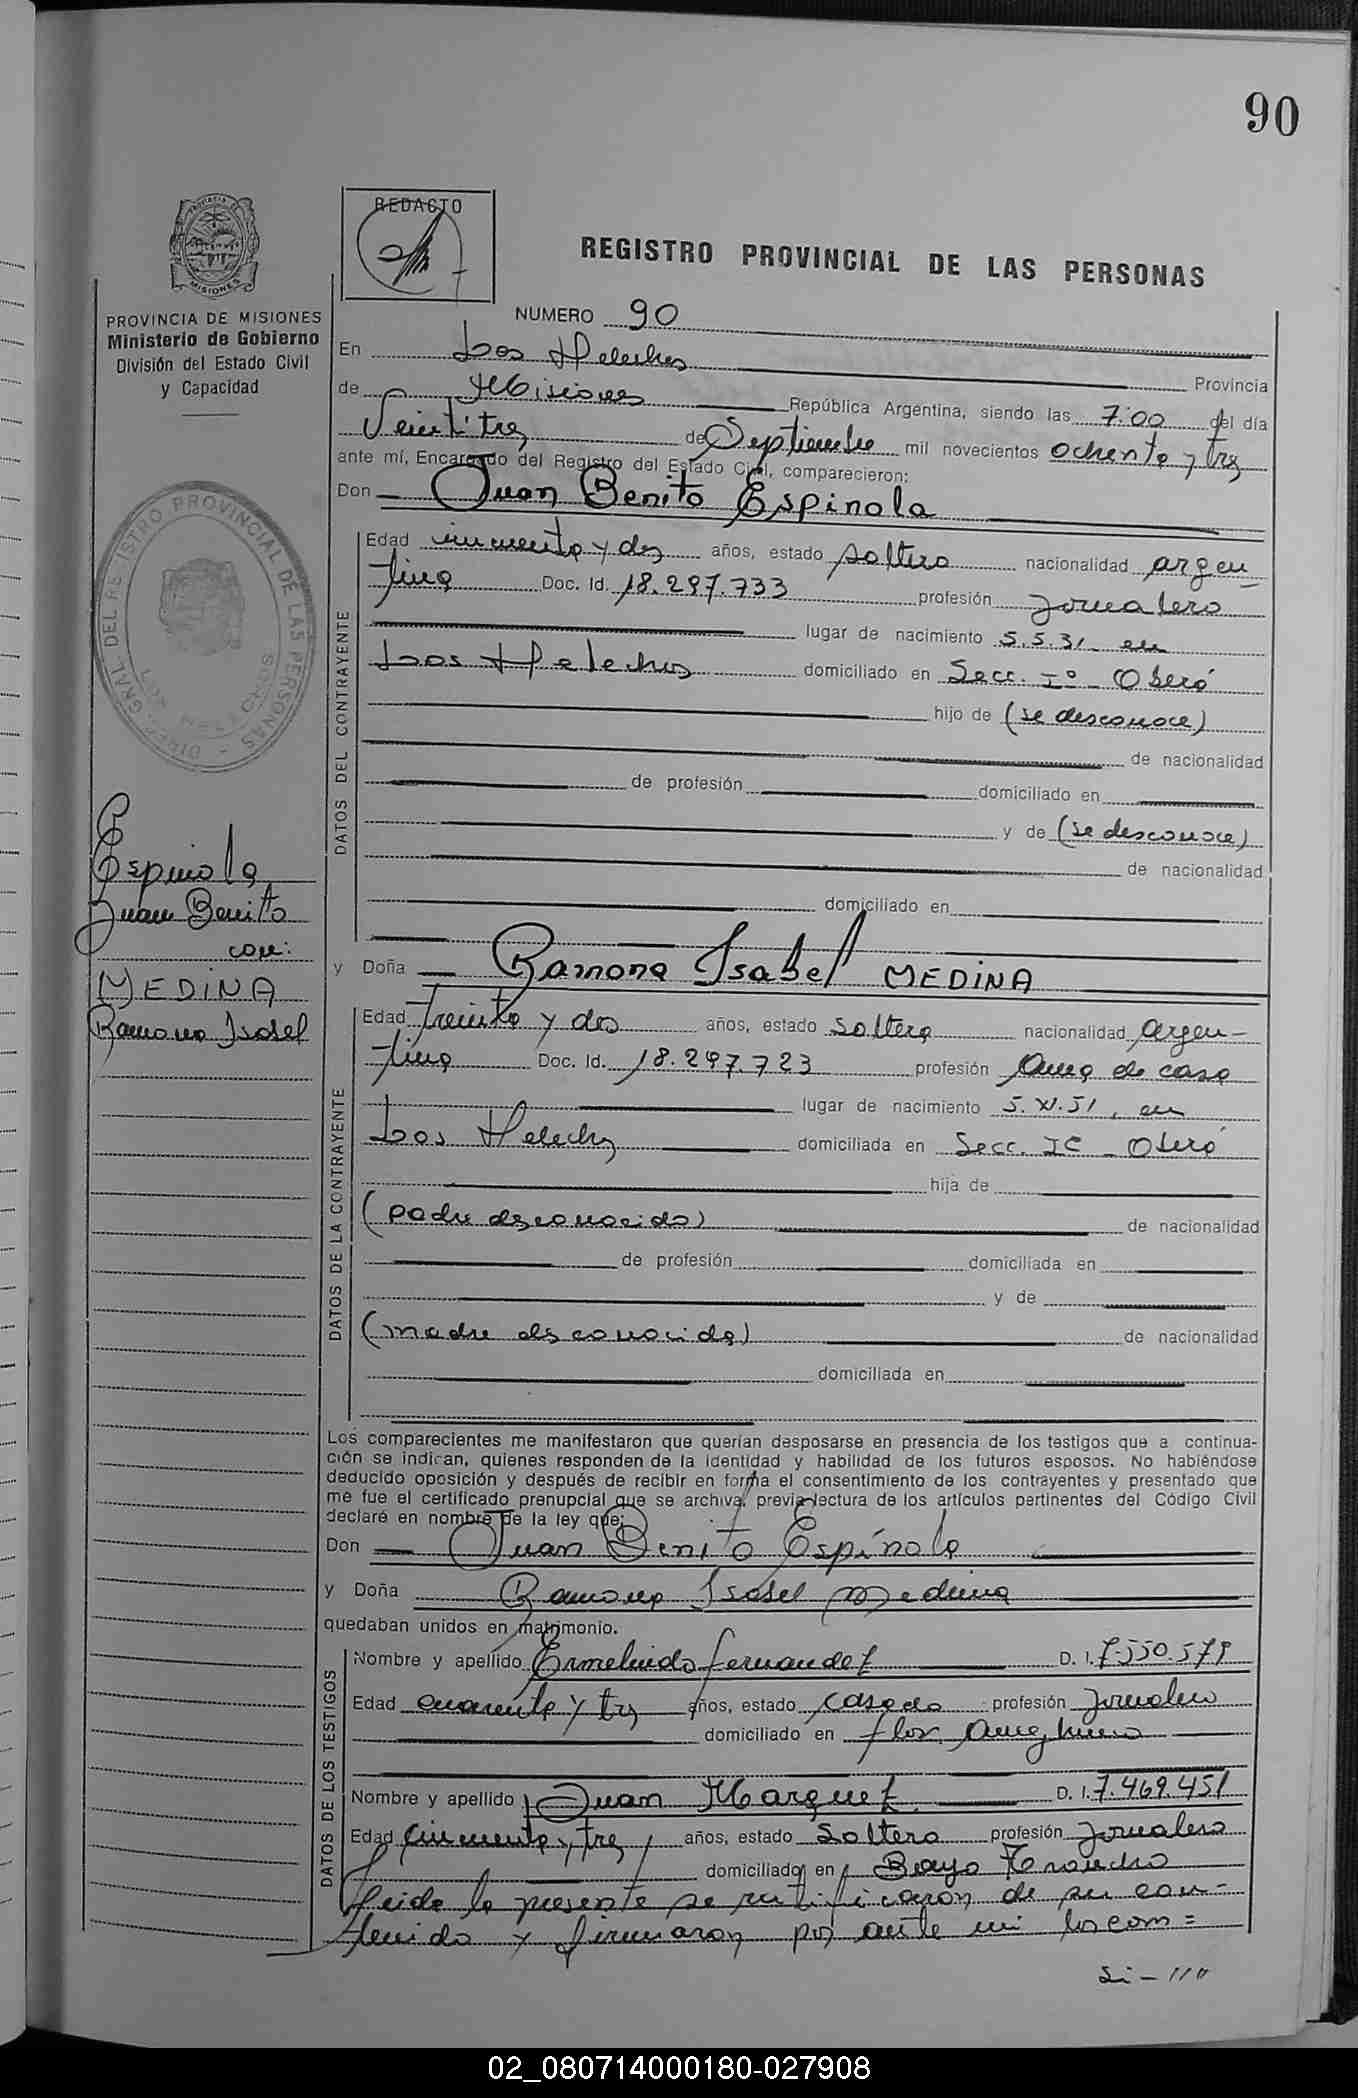 90
REDACTO
REGISTRO PROVINCIAL DE LAS PERSONAS
MISIONES
PROVINCIA DE MISIONES
Ministerio de Gobierno
División del Estado Civil
y Capacidad
DIREC. GRAL. DEL REGISTRO PROVINCIAL DE LAS PERSONAS
LOS HELECHOS
Espinola
Juan Benito
con:
MEDINA
Ramona Isabel
NUMERO 90
En Los Helechos Provincia
de Misiones República Argentina, siendo las 7:00 del día
Veintitres de Septiembre mil novecientos ochenta y tres
ante mí, Encargado del Registro del Estado Civil, comparecieron:
Don Juan Benito Espinola
DATOS DEL CONTRAYENTE
Edad cincuenta y dos años, estado soltero nacionalidad argen
tina Doc. Id. 18.297.733 profesión Jornalero
lugar de nacimiento 5.5.31 en
Los Helechos domiciliado en Secc. Iº - Oberá
hijo de (se desconoce)
de nacionalidad
de profesión domiciliado en
y de (se desconoce)
de nacionalidad
domiciliado en
y Doña Ramona Isabel MEDINA
DATOS DE LA CONTRAYENTE
Edad treinta y dos años, estado soltera nacionalidad argen-
tina Doc. Id. 18.297.723 profesión Ama de casa
lugar de nacimiento 5.XI.51, en
Los Helechos domiciliada en Secc. Iº - Oberá
hija de
(padre desconocido) de nacionalidad
de profesión domiciliada en
y de
(madre desconocida) de nacionalidad
domiciliada en
Los comparecientes me manifestaron que querían desposarse en presencia de los testigos que a continua-
ción se indican, quienes responden de la identidad y habilidad de los futuros esposos. No habiéndose
deducido oposición y después de recibir en forma el consentimiento de los contrayentes y presentado que
me fue el certificado prenupcial que se archiva, previa lectura de los artículos pertinentes del Código Civil
declaré en nombre de la ley que:
Don Juan Benito Espínola
y Doña Ramona Isabel Medina
quedaban unidos en matrimonio.
DATOS DE LOS TESTIGOS
Nombre y apellido Ermelindo Fernandez D. I. 7.550.579
Edad cuarenta y tres años, estado casado profesión Jornalero
domiciliado en Flor. Ameghino
Nombre y apellido Juan Marquez D. I. 7.469.451
Edad Cincuenta y tres años, estado Soltero profesión Jornalero
domiciliado en Bayo Troncho
Leída la presente se ratificaron de su con-
tenido y firmaron por ante mi los com=
Si-///
02_080714000180-027908